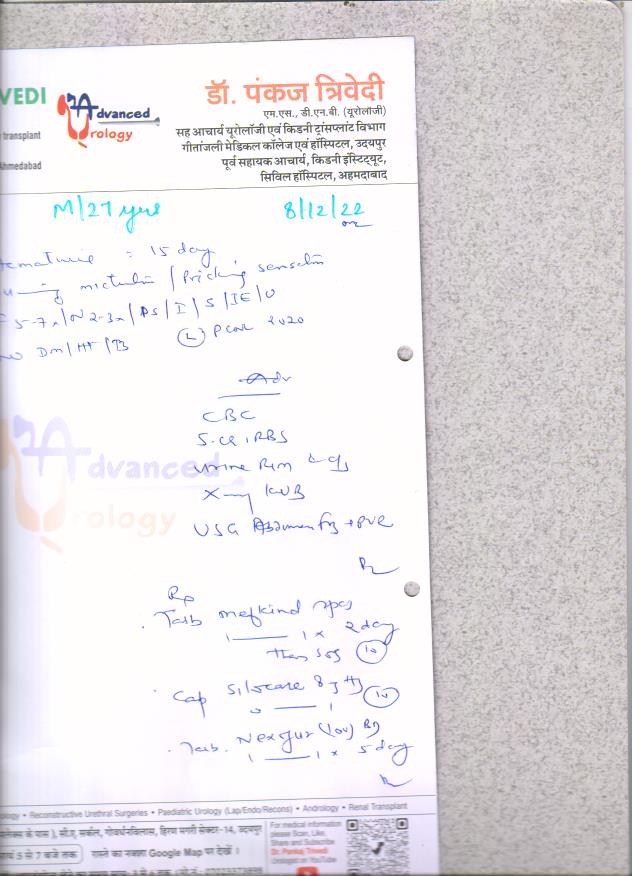 VEDI
transplant
Ahmedabad
Advanced
Urology
डॉ. पंकज त्रिवेदी
एम.एस., डी.एन.बी. (यूरोलॉजी)
सह आचार्य यूरोलॉजी एवं किडनी ट्रांसप्लांट विभाग
गीतांजली मेडिकल कॉलेज एवं हॉस्पिटल, उदयपुर
पूर्व सहायक आचार्य, किडनी इंस्टिट्यूट,
सिविल हॉस्पिटल, अहमदाबाद
M/27 yrs 8/12/22
15 day
micturition / Pricking sensation
5-7x/N 2-3x/ PS / I / S / IE / U
DM/HT/TB (L) PCNL 2020
Adv
CBC
S.Cr, RBS
urine R/m & c/s
X-ray KUB
USG +PVR
Advanced
Urology
Rp
Tab mefkind spas
1 —— 1 x 2 day
then SOS (10)
Cap Silocare 8 (10)
0 —— 1
Tab. (100) BD
1 —— 1 x 5 day
ology • Reconstructive Urethral Surgeries • Paediatric Urology (Lap/Endo/Recons) • Andrology • Renal Transplant
के पास ), सी.ए. सर्कल, गोवर्धनविलास, हिरण मगरी सेक्टर-14, उदयपुर
सायं 5 से 7 बजे तक रास्ते का नक्शा Google Map पर देखें ।
For medical information
please Scan, Like,
Share and Subscribe
Dr. Pankaj Trivedi
Urologist on YouTube